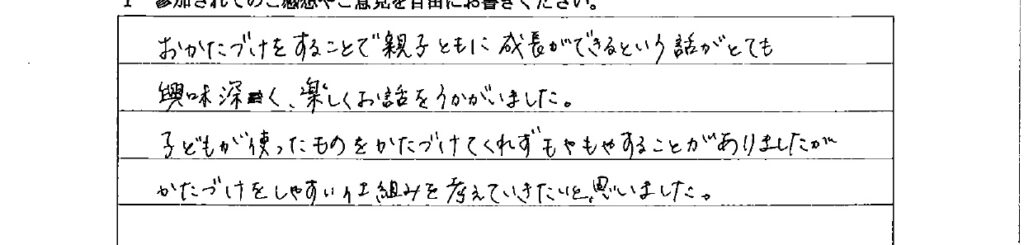 1 参加されてのご感想やご意見を自由にお書きください。
おかたづけをすることで親子ともに成長ができるという話がとても
興味深く、楽しくお話をうかがいました。
子どもが使ったものをかたづけてくれずもやもやすることがありましたが
かたづけをしやすい仕組みを考えていきたいと思いました。